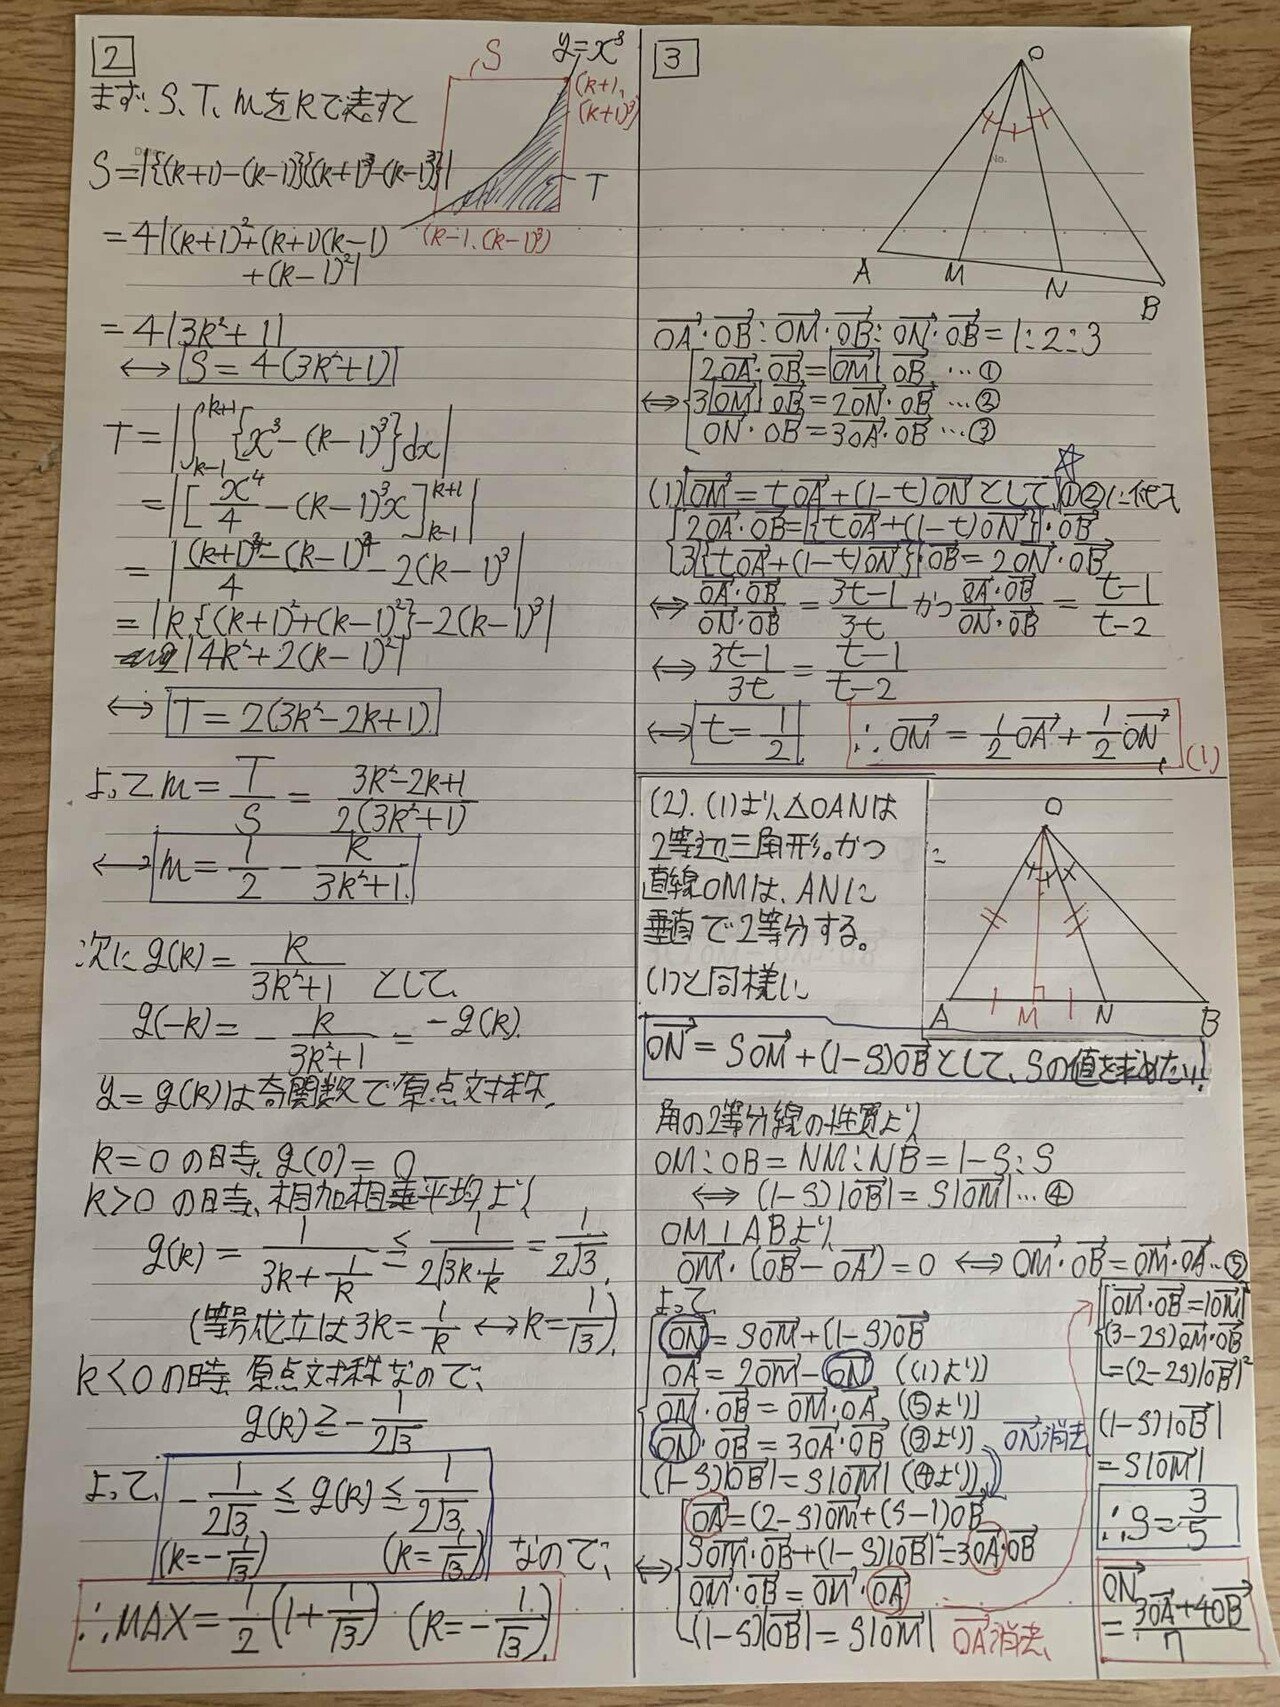 2
y=x³
S
(k+1, (k+1)³)
まず、S、T、mをkで表すと
S=|{(k+1)-(k-1)}{(k+1)³-(k-1)³}|
T
(k-1, (k-1)³)
=4|(k+1)²+(k+1)(k-1)
+(k-1)²|
=4|3k²+1|
↔ S=4(3k²+1)
T=|∫_{k-1}^{k+1}{x³-(k-1)³}dx|
=|[x⁴/4-(k-1)³x]_{k-1}^{k+1}|
=|((k+1)⁴-(k-1)⁴)/4-2(k-1)³|
=|k{(k+1)²+(k-1)²}-2(k-1)³|
|4k²+2(k-1)²|
↔ T=2(3k²-2k+1)
よって m=T/S=(3k²-2k+1)/(2(3k²+1))
↔ m=1/2-k/(3k²+1)
次に g(k)=k/(3k²+1) として、
g(-k)=-k/(3k²+1)=-g(k).
y=g(k)は奇関数で原点対称.
k=0の時、g(0)=0
k>0の時、相加相乗平均より
g(k)=1/(3k+1/k)≦1/(2√(3k・1/k))=1/(2√3)
(等号成立は3k=1/k↔k=1/√3)
k<0の時、原点対称なので、
g(k)≧-1/(2√3)
よって、-1/(2√3)≦g(k)≦1/(2√3)
(k=-1/√3) (k=1/√3) なので、
∴MAX=1/2(1+1/√3) (k=-1/√3).
3
O
A M N B
No.
OA→・OB→:OM→・OB→:ON→・OB→=1:2:3
⇔{2OA→・OB→=OM→・OB→…①
3OM→・OB→=2ON→・OB→…②
ON→・OB→=3OA→・OB→…③
(1) OM→=tOA→+(1-t)ON→として、①②に代入
{2OA→・OB→={tOA→+(1-t)ON→}・OB→
3{tOA→+(1-t)ON→}・OB→=2ON→・OB→
⇔(OA→・OB→)/(ON→・OB→)=(3t-1)/3t かつ (OA→・OB→)/(ON→・OB→)=(t-1)/(t-2)
⇔(3t-1)/3t=(t-1)/(t-2)
⇔t=1/2 ∴OM→=1/2OA→+1/2ON→ (1)
(2). (1)より、△OANは
2等辺三角形。かつ
直線OMは、ANに
垂直で2等分する。
(1)と同様に
O
A M N B
ON→=SOM→+(1-S)OB→として、Sの値を求めたい!
角の2等分線の性質より
OM:OB=NM:NB=1-S:S
⇔(1-S)|OB→|=S|OM→|…④
OM⊥ABより、
OM→・(OB→-OA→)=0⇔OM→・OB→=OM→・OA→…⑤
よって、
{ON→=SOM→+(1-S)OB→
OA→=2OM→-ON→ ((1)より)
OM→・OB→=OM→・OA→ (⑤より)
ON→・OB→=3OA→・OB→ (③より)
(1-S)|OB→|=S|OM→| (④より)
ON→消去
⇔{OA→=(2-S)OM→+(S-1)OB→
SOM→・OB→+(1-S)|OB→|²=3OA→・OB→
OM→・OB→=OM→・OA→
(1-S)|OB→|=S|OM→|
OA→消去、
{OM→・OB→=|OM→|²
(3-2S)OM→・OB→
=(2-2S)|OB→|²
(1-S)|OB→|
=S|OM→|
∴S=3/5
ON→
=(3OA→+4OB→)/7